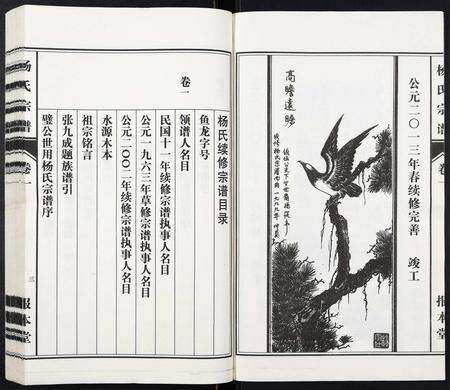 杨氏宗谱
卷一
报本堂
公元二〇一三年春续修完善 竣工
高瞻远瞩
杨氏续修宗谱目录
卷一
鱼龙字号
领谱人名目
民国十一年续修宗谱执事人名目
公元一九六三年草修宗谱执事人名目
公元二〇〇二年续修宗谱执事人名目
水源木本
祖宗铭言
张九成题族谱引
璧公世用杨氏宗谱序
杨氏宗谱
卷一
三
报本堂